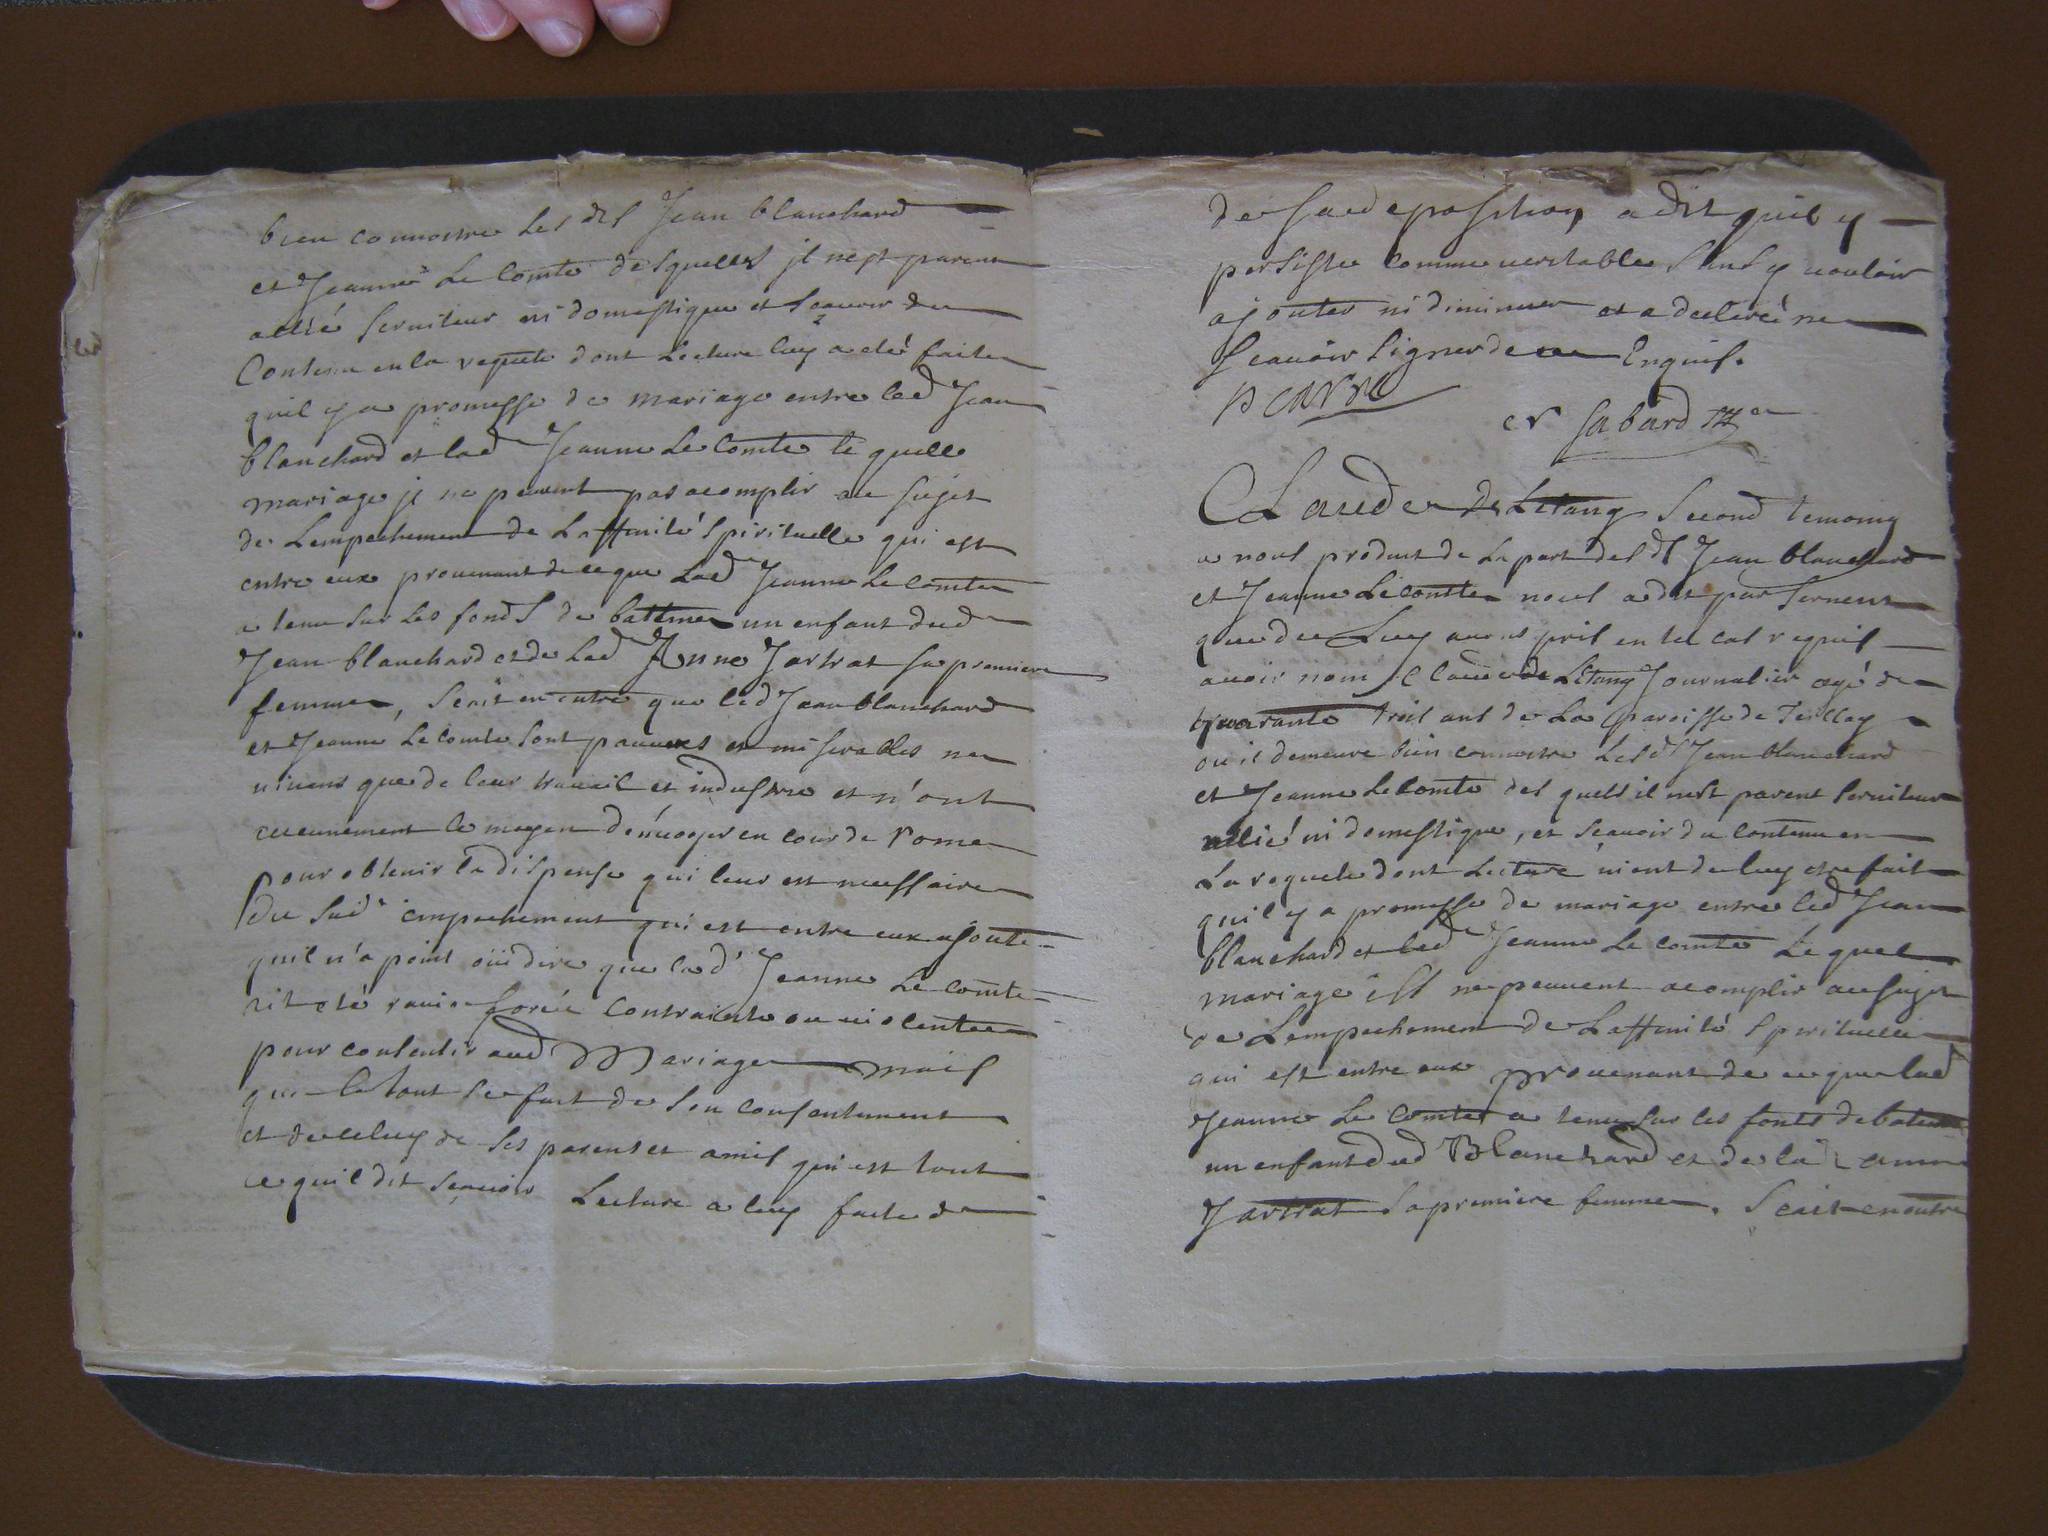 bien connoitre les dts Jean blanchard
et Jeanne Le Comte desquelles jl nest parent
allié seruiteur ni domestique et scauoir du
Contenu en la requete dont Lecture luy a eté faite
quil y a promesse de mariage entre led Jean
blanchard et lad Jeanne Le Comte le quelle
mariage jl ne peuuent pas acomplir au sujet
de Lempechement de Laffinité spirituelle qui est
entre eux prouenant de ce que Lad Jeanne Le Comte
a tenu sur Les fonds de batteme un enfant dud
Jean blanchard et de Lad Anne Jartrat sa premiere
femme, scait en outre que led Jean blanchard
et Jeanne Le comte sont pauures et miserables ne
uiuans que de leur trauail et industrie et n'ont
aucunement le moyen d'enuoyer en cour de rome
pour obtenir la dispense qui leur est nessaire
du sudt empechement qui est entre eux ajoute
quil n'a point oüi dire que lad Jeanne Le Comte
ait eté rauie forcée contrainte ou uiolentee
pour consentir aud Mariage mais
que le tout se fait de son consentement
et de celuy de ses parens et amis qui est tout
ce quil dit scauoir Lecture a luy faite de
3
de sa deposition a dit quil y
persiste comme ueritable sans y uouloir
ajouter ni diminuer et a declaré ne
scauoir signer de ce Enquis.
sabard
Claude de Letang second temoing
a nous produit de La part des dts Jean blanchard
et Jeanne Le comte nous a dit par serment
que de Luy auons pris en tel cas requis
auoir nom Claude de Letang Journalier agé de
quarante trois ans de La paroisse de Teillay
ou il demeure bien connoitre Lesdts Jean blanchard
et Jeanne Le Comte des quels il nest parent seruiteur
allié ni domestique, et scauoir du contenu en
La requete dont Lecture uient de luy etre fait
quil y a promesse de mariage entre led Jean
blanchard et lad Jeanne Le comte Le quel
mariage ils ne peuuent acomplir au sujet
de Lempechement de Laffinité spirituelle
qui est entre eux prouenant de ce que lad
Jeanne Le Comte a tenu sur les fonts de bateme
un enfant dud Blanchard et de la anne
Jartrat sa premiere femme. Scait en outre